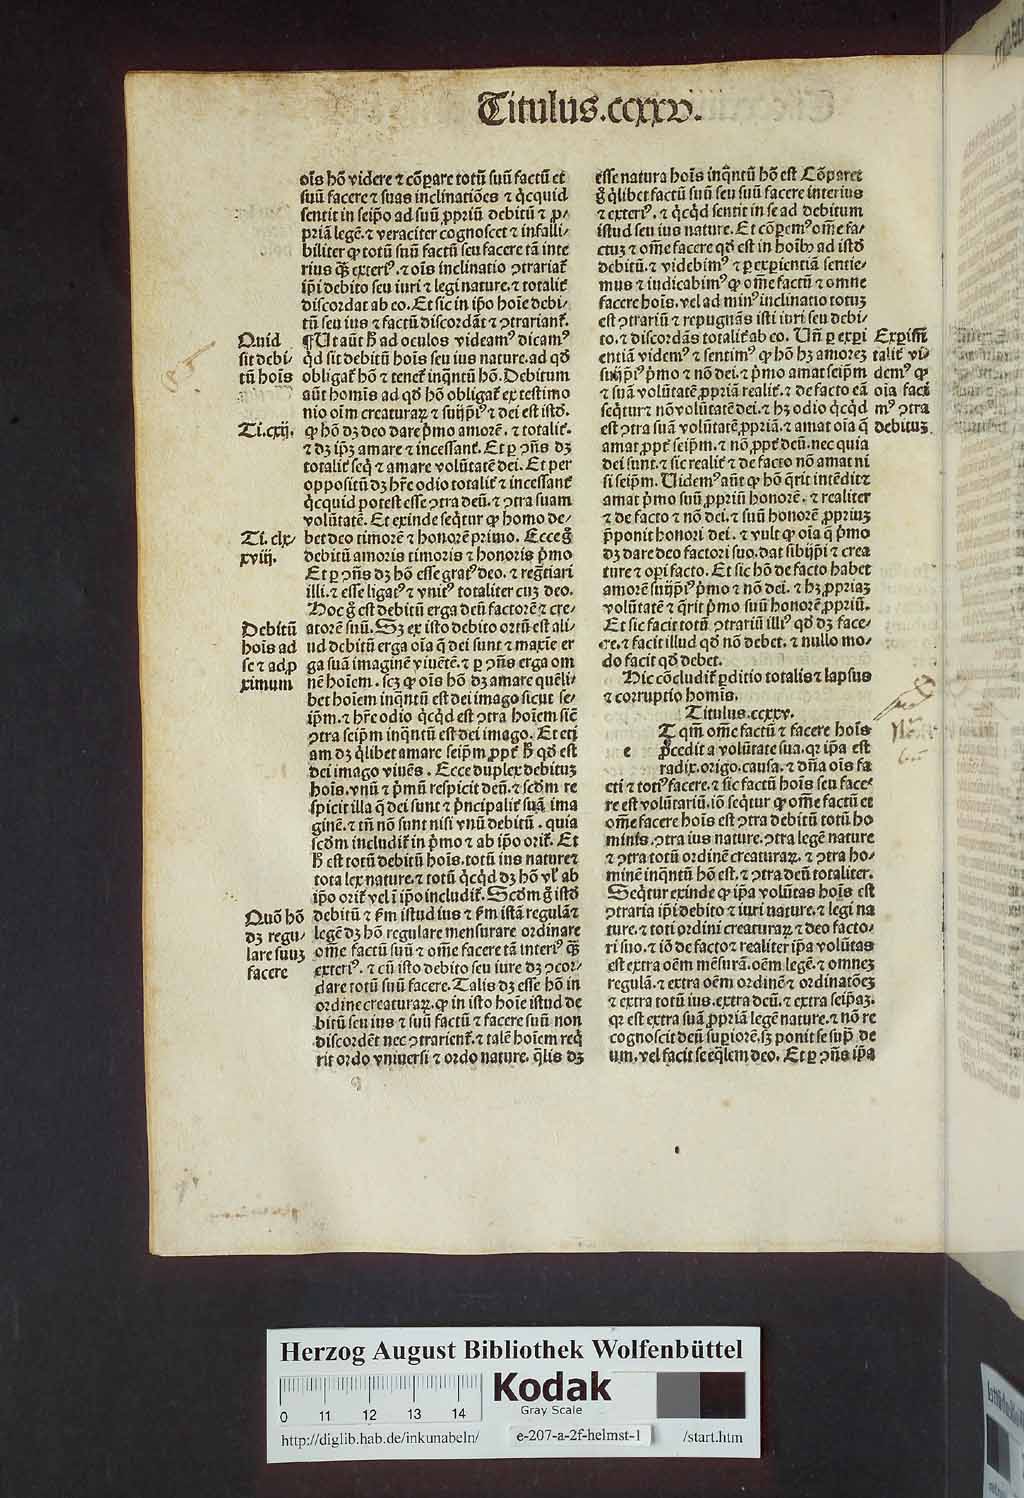 Titulus.ccxxv.
oīs hō videre ⁊ cōꝑare totū suū factū et
suū facere ⁊ suas inclinatiōes ⁊ q̇cquid
sentit in seip̄o ad suū ꝓpriū debitū ⁊ ꝓ/
priā legē.⁊ veraciter cognoscet ⁊ infalli/
biliter ꝙ totū suū factū seu facere tā inte
rius q̄ȝ exteriꝰ.⁊ oīs inclinatio ꝯtrariat᷑
ip̄i debito seu iuri ⁊ legi nature.⁊ totalit᷑
discordat ab eo. Et sic in ip̄o hoīe debi/
tū seu ius ⁊ factū discordāt ⁊ ꝯtrariant᷑.
¶Ut aūt h̄ ad oculos videamꝰ dicamꝰ
q̇d sit debitū hoīs seu ius nature.ad qd̄
obligat᷑ hō ⁊ tenet᷑ inq̄ntū hō. Debitum
aūt homīs ad qd̄ hō obligat᷑ ex testimo
nio oīm creaturaꝝ ⁊ suijp̄iꝰ ⁊ dei est istd̄.
ꝙ hō dȝ deo dare p̄mo amorē.⁊ totalit᷑.
⁊ dȝ ip̄ȝ amare ⁊ incessant᷑. Et ꝑ ꝯn̄s dȝ
totalit᷑ seq̇ ⁊ amare volūtatē dei. Et per
oppositū dȝ hr̄e odio totalit᷑ ⁊ incessant᷑
q̇cquid potest esse ꝯtra deū.⁊ ꝯtra suam
volūtatē. Et exinde seq̇tur ꝙ homo de/
bet deo timorē ⁊ honorē primo. Ecce g̊
debitū amoris timoris ⁊ honoris p̄mo
Et ꝑ ꝯn̄s dȝ hō esse gratꝰ deo.⁊ regr̄tiari
illi.⁊ esse ligatꝰ ⁊ vnitꝰ totaliter cuȝ deo.
Hoc g̊ est debitū erga deū factorē ⁊ cre/
atorē suū. Sȝ ex isto debito ortū est ali/
ud debitū erga oīa q̄ dei sunt ⁊ maxīe er
ga suā imaginē viuētē.⁊ ꝑ ꝯn̄s erga om
nē hoīem.scȝ ꝙ oīs hō dȝ amare quēli/
bet hoīem inq̄ntū est dei imago sicut se/
ip̄m.⁊ hr̄e odio q̇cq̇d est ꝯtra hoīem sic̄
ꝯtra seip̄m inq̄ntū est dei imago. Et eti
am dȝ q̇libet amare seip̄m ꝓpt᷑ h̄ qd̄ est
dei imago viuēs. Ecce duplex debituȝ
hoīs.vnū ⁊ p̄mū respicit deū.⁊ scd̄m re
spicit illa q̄ dei sunt ⁊ p̄ncipalit᷑ suā ima
ginē.⁊ tn̄ nō sunt nisi vnū debitū.quia
scd̄m includit᷑ in p̄mo ⁊ ab ip̄o orit᷑. Et
h̄ est totū debitū hoīs.totū ius nature ⁊
tota lex nature.⁊ totū q̇cq̇d dȝ hō vl᷑ ab
ip̄o orit᷑ vel ī ip̄o includit᷑. Scd̄m g̊ istd̄
debitū ⁊ ẜm istud ius ⁊ ẜm istā regulā ⁊
legē dȝ hō regulare mensurare ordinare
om̄e factū suū ⁊ om̄e facere tā interiꝰ q̄ȝ
exteriꝰ.⁊ cū isto debito seu iure dȝ ꝯcor/
dare totū suū facere. Talis dȝ esse hō in
ordine creaturaꝝ.ꝙ in isto hoīe istud de
bitū seu ius ⁊ suū factū ⁊ facere suū non
discordēt nec ꝯtrarient᷑.⁊ talē hoīem req̇
rit ordo vniuersi ⁊ ordo nature.q̄lis dȝ
Quid
sit debi/
tū hoīs
Ti.cxij.
Ti.clx/
xviij.
Debitū
hoīs ad
se ⁊ ad ꝓ
ximum
Quō hō
dȝ regu/
lare suuȝ
facere
esse natura hoīs inq̄ntū hō est Cōparet
g̊ q̇libet factū suū seu suū facere interius
⁊ exteriꝰ.⁊ q̇cq̇d sentit in se ad debitum
istud seu ius nature. Et cōꝑemꝰ om̄e fa/
ctuȝ ⁊ om̄e facere qd̄ est in hoībꝰ ad istd̄
debitū.⁊ videbimꝰ ⁊ ꝑ exꝑientiā sentie/
mus ⁊ iudicabimꝰ ꝙ om̄e factū ⁊ omne
facere hoīs.vel ad minꝰ inclinatio totuȝ
est ꝯtrariū ⁊ repugnās isti iuri seu debi/
to.⁊ discordās totalit᷑ ab eo. Un̄ ꝑ exꝑi
entiā videmꝰ ⁊ sentimꝰ ꝙ hō hȝ amoreȝ
suijp̄iꝰ p̄mo ⁊ nō dei.⁊ p̄mo amat seip̄m
⁊ suā volūtatē ꝓpriā realit᷑.⁊ de facto eā
seq̇tur ⁊ nō volūtatē dei.⁊ hȝ odio q̇cq̇d
est ꝯtra suā volūtatē ꝓpriā.⁊ amat oīa q̄
amat ꝓpt᷑ seip̄m.⁊ nō ꝓpt᷑ deū.nec quia
dei sunt.⁊ sic realit᷑ ⁊ de facto nō amat ni
si seip̄m. Uidemꝰ aūt ꝙ hō q̄rit intēdit ⁊
amat p̄mo suū ꝓpriū honorē.⁊ realiter
⁊ de facto ⁊ nō dei.⁊ suū honorē ꝓpriuȝ
p̄ponit honori dei.⁊ vult ꝙ oīa q̄ p̄mo
dȝ dare deo factori suo.dat sibijp̄i ⁊ crea
ture ⁊ oꝑi facto. Et sic hō de facto habet
amorē suijp̄iꝰ p̄mo ⁊ nō dei.⁊ hȝ ꝓpriaȝ
volūtatē ⁊ q̄rit p̄mo suū honorē ꝓpriū.
Et sic facit totū ꝯtrariū illiꝰ qd̄ dȝ face/
re.⁊ facit illud qd̄ nō debet.⁊ nullo mo/
do facit qd̄ debet.
Hic cōcludit᷑ ꝑditio totalis ⁊ lapsus
⁊ corruptio homīs.
Titulus.ccxxv.
e
T qm̄ om̄e factū ⁊ facere hoīs
ꝓcedit a volūtate sua.qꝛ ip̄a est
radix.origo.causa.⁊ dn̄a oīs fa
cti ⁊ totiꝰ facere.⁊ sic factū hoīs seu face/
re est volūtariū.iō seq̇tur ꝙ om̄e factū et
om̄e facere hoīs est ꝯtra debitū totū ho
minis.ꝯtra ius nature.ꝯtra legē nature
⁊ ꝯtra totū ordinē creaturaꝝ.⁊ ꝯtra ho/
minē inq̄ntū hō est.⁊ ꝯtra deū totaliter.
Seq̇tur exinde ꝙ ip̄a volūtas hoīs est
ꝯtraria ip̄i debito ⁊ iuri nature.⁊ legi na
ture.⁊ toti ordini creaturaꝝ ⁊ deo facto/
ri suo.⁊ iō de facto ⁊ realiter ip̄a volūtas
est extra oēm mēsurā.oēm legē.⁊ omneȝ
regulā.⁊ extra oēm ordinē ⁊ ordinatōeȝ
⁊ extra totū ius.extra deū.⁊ extra seip̄aȝ.
qꝛ est extra suā ꝓpriā legē nature.⁊ nō re
cognoscit deū suꝑiorē.sȝ ponit se suꝑ de
um.vel facit se eq̄lem deo. Et ꝑ ꝯn̄s ip̄a
Exp̄ism̄
talit᷑ vi/
demꝰ ꝙ
oīa faci
mꝰ ꝯtra
debituȝ.
Herzog August Bibliothek Wolfenbüttel
0 11 12 13 14
Kodak
Gray Scale
http://diglib.hab.de/inkunabeln/ e-207-a-2f-helmst-1 /start.htm